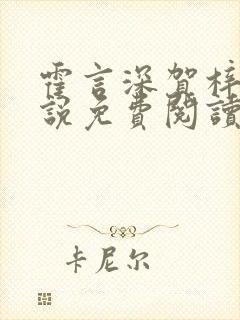 霍言深賀梓
說免費閱讀
卡尼尔